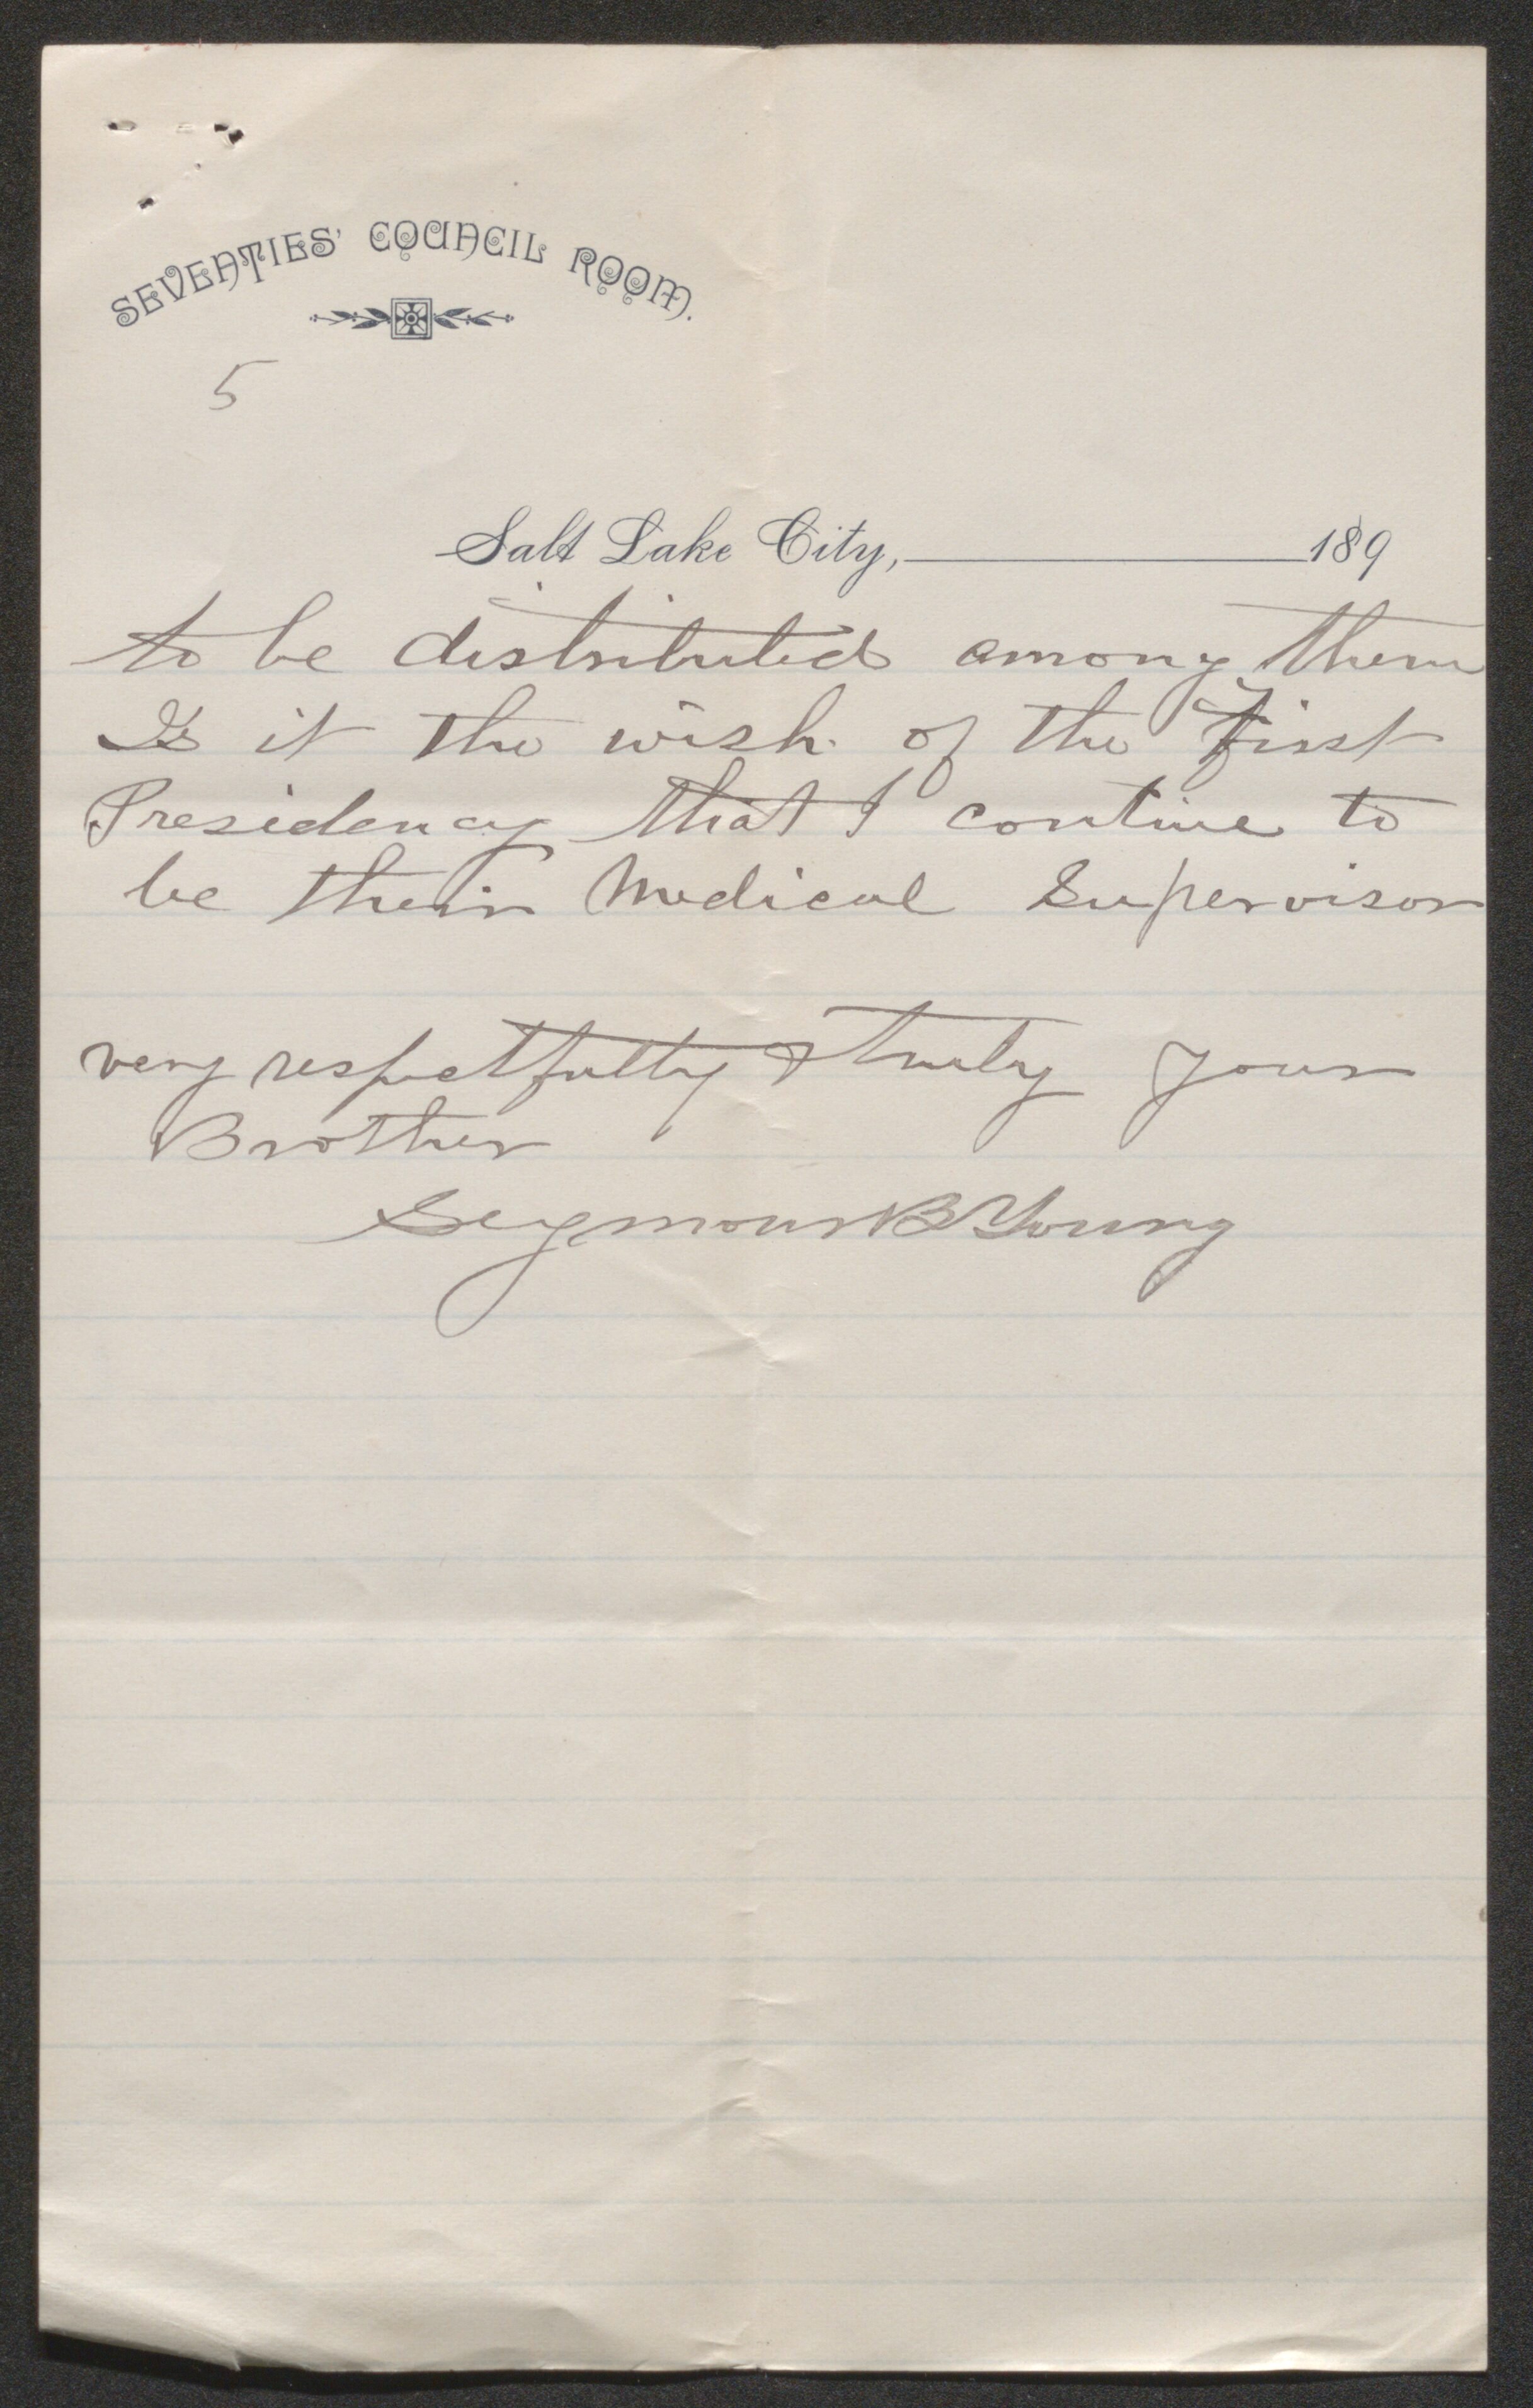 SEVENTIES' COUNCIL ROOM.
5
Salt Lake City, 189
to be distributed among them
Is it the wish of the First
Presidency that I contiue to
be their Medical Supervisor
very respectfully & truly your
Brother
Seymour B Young